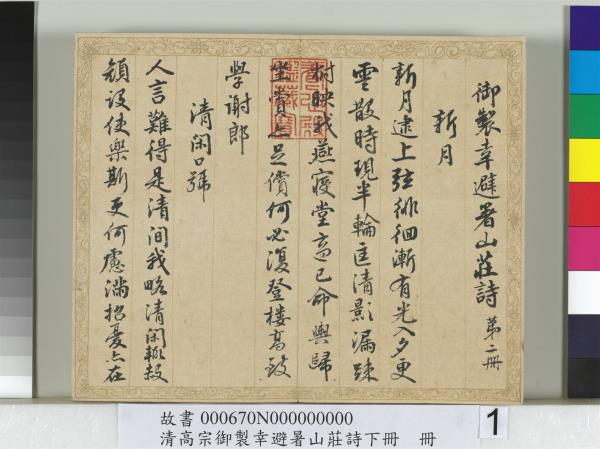 御製幸避暑山莊詩 第二冊
新月
新月逮上弦徘徊漸有光入夕更
雲散時現半輪匡清影漏疎
樹映我燕寢堂言已命輿歸
坐賞亦足償何必復登樓高致
學謝郎
清閑口號
人言難得是清閒我略清閑輒赧
顏設使樂斯更何慮滿招憂亦在
故書 000670N000000000
清高宗御製幸避暑山莊詩下冊 冊
1